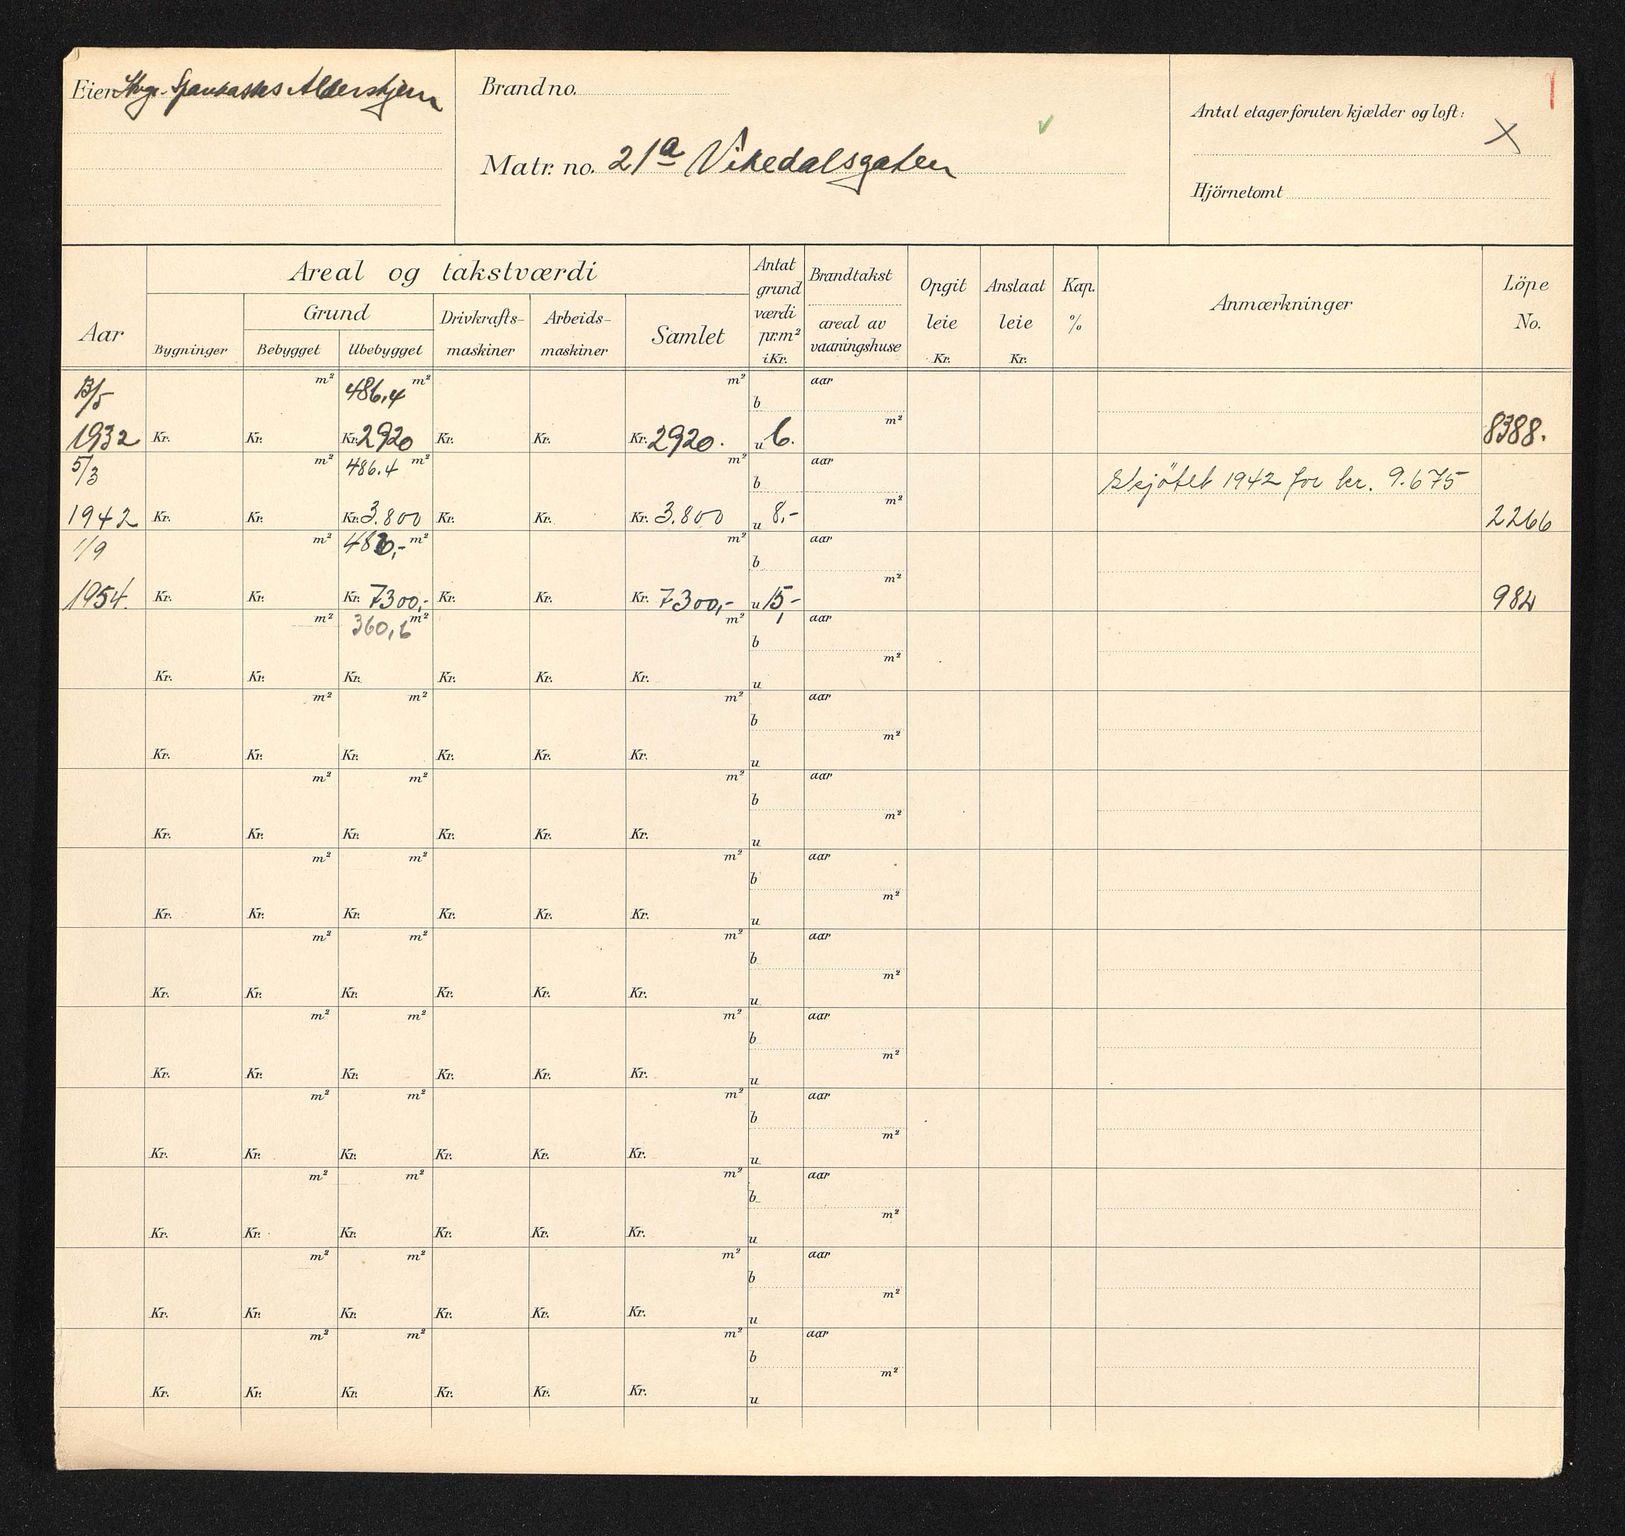 Eier Stvgr. Sparkasses Aldershjem
Brand no.
Matr. no. 21a Vikedalsgaten
Antal etager foruten kjælder og loft: X
Hjörnetomt
Aar
Areal og takstværdi
Bygninger
Grund
Bebygget
Ubebygget
Drivkrafts-
maskiner
Arbeids-
maskiner
Samlet
Antat
grund
værdi
pr.m²
i Kr.
Brandtakst
areal av
vaaningshuse
Opgit
leie
Kr.
Anslaat
leie
Kr.
Kap.
%
Anmærkninger
Löpe
No.
13/5 m² 486,4 m² m² aar
b
m²
1932 Kr. Kr. Kr. 2920 Kr. Kr. Kr. 2920. u 6. 8388.
5/3 m² 486.4 m² m² aar
b skjøtet 1942 for kr. 9.675
m²
1942 Kr. Kr. Kr. 3.800 Kr. Kr. Kr. 3.800 u 8,- 2266
1/9 m² 486,- m² m² aar
b
m²
1954. Kr. Kr. Kr. 7300,- Kr. Kr. Kr. 7300,- u 15,- 984
m² 360,6 m² m² aar
b
m²
Kr. Kr. Kr. Kr. Kr. Kr. u
m² m² m² aar
b
m²
Kr. Kr. Kr. Kr. Kr. Kr. u
m² m² m² aar
b
m²
Kr. Kr. Kr. Kr. Kr. Kr. u
m² m² m² aar
b
m²
Kr. Kr. Kr. Kr. Kr. Kr. u
m² m² m² aar
b
m²
Kr. Kr. Kr. Kr. Kr. Kr. u
m² m² m² aar
b
m²
Kr. Kr. Kr. Kr. Kr. Kr. u
m² m² m² aar
b
m²
Kr. Kr. Kr. Kr. Kr. Kr. u
m² m² m² aar
b
m²
Kr. Kr. Kr. Kr. Kr. Kr. u
m² m² m² aar
b
m²
Kr. Kr. Kr. Kr. Kr. Kr. u
m² m² m² aar
b
m²
Kr. Kr. Kr. Kr. Kr. Kr. u